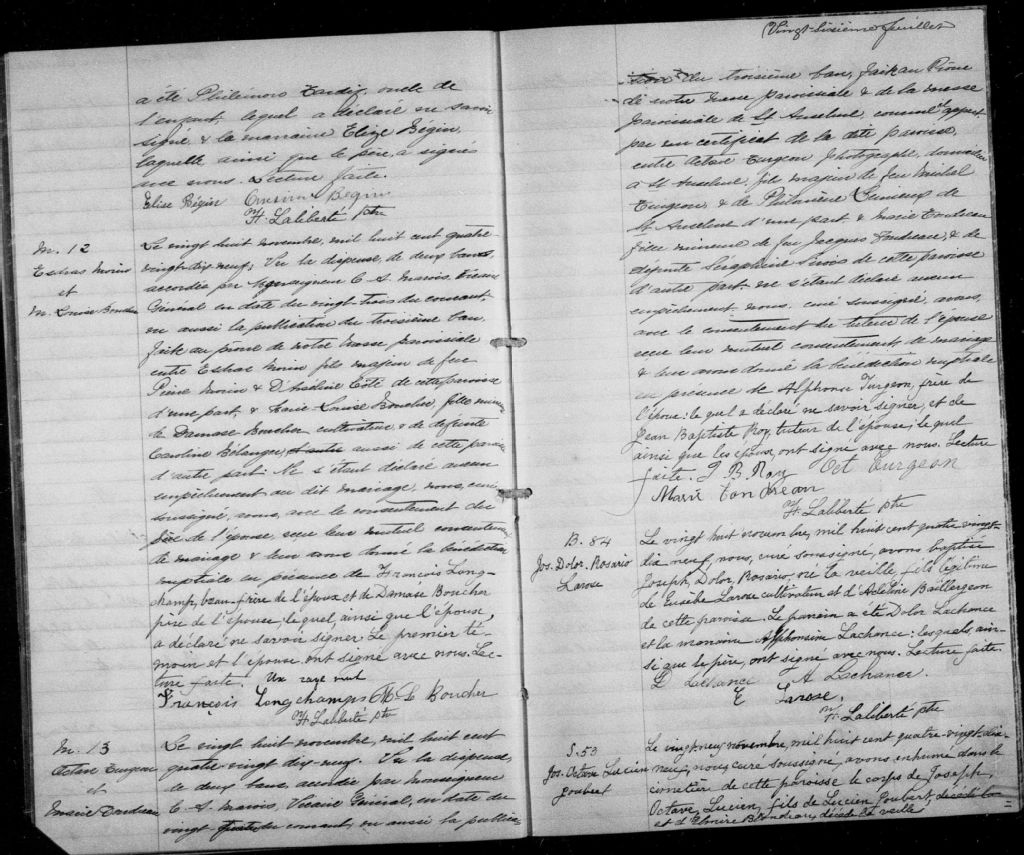 a été Philémon Tardif, oncle de
l'enfant lequel a déclaré ne savoir
signé & la marraine Elize Bégin,
laquelle ainsi que le père, a signés
avec nous. Lecture faite.
Elise Bégin Bégin
H. Laliberté ptre
M. 12
Esdras Morin
et
M. Louise Boucher
Le vingt huit novembre, mil huit cent quatre-
vingt-dix-neuf; Vu la dispense de deux bans,
accordée par Monseigneur C. A. Marois, Vicaire
Général en date du vingt-trois du courant,
vu aussi la publication du troisième ban,
faite au prône de notre messe paroissiale
entre Esdras Morin fils majeur de feu
Pierre Morin & D'Adeline Côté de cette paroisse
d'une part, & Marie Louise Boucher, fille mineure
de Damase Boucher cultivateur, & de défunte
Caroline Bélanger, aussi de cette paroisse
d'autre part. Ne s'étant déclaré aucun
empêchement au dit mariage, nous, curé
soussigné, avec le consentement du
père de l'épouse, reçu leur mutuel consentement
de mariage & leur avons donné la bénédiction
nuptiale en présence de François Long-
champ, beau-frère de l'époux et de Damase Boucher
père de l'épouse, lequel, ainsi que l'époux,
a déclaré ne savoir signer. Le premier té-
moin et l'épouse, ont signé avec nous. Lec-
ture faite. Un rayé nul
François Longchamps M. L. Boucher
H. Laliberté ptre
M. 13
Octave Turgeon
et
Marie Tondreau
Le vingt huit novembre, mil huit cent
quatre vingt dix-neuf. Vu la dispense,
de deux bans, accordée par Monseigneur
C. A. Marois, Vicaire Général, en date du
vingt du courant, vu aussi la publica
Vingt-sixième feuillet
du troisième ban, faite au Prône
de notre messe paroissiale & de la messe
paroissiale de St Anselme, comme appert
par un certificat de la dite paroisse,
entre Octave Turgeon photographe, domicilié
à St Anselme, fils majeur de feu Michel
Turgeon, & de Philomène Lemieux de
St Anselme d'une part & Marie Tondreau
fille mineure de feu Jacques Tondreau, & de
défunte Séraphine Sirois de cette paroisse
d'autre part ne s'étant déclaré aucun
empêchement, nous, curé soussigné, avons,
avec le consentement du tuteur de l'épouse
reçu leur mutuel consentement, de mariage
& leur avons donné la bénédiction nuptiale
en présence de Alphonse Turgeon, frère de
l'époux: lequel a déclaré ne savoir signer, et de
Jean Baptiste Roy, tuteur de l'épouse; lequel
ainsi que les époux, ont signé avec nous. Lecture
faite. J. B. Roy Oct Turgeon
Marie Tondreau
H. Laliberté ptre
B. 84
Jos. Dolor. Rosario
Larose
Le vingt huit novembre, mil huit cent quatre vingt-
dix neuf, nous, curé soussigné, avons baptisé
Joseph, Dolor, Rosario, né la veille, fils légitime
de Eusèbe Larose cultivateur et d'Adeline Baillergeon
de cette paroisse. Le parrain a été Dolor Lachance
et la marraine Alphonsine Lachance; lesquels, ain-
si que le père, ont signé avec nous. Lecture faite.
D. Lachance A Lachance.
E Larose.
H. Laliberté ptre
S. 53
Jos. Octave Lucien
Joubert
Le vingt neuf novembre, mil huit cent quatre-vingt-dix-
neuf, nous, curé soussigné, avons inhumé dans le
cimetière de cette paroisse le corps de Joseph,
Octave, Lucien, fils de Lucien Joubert,
et d'Elmire Blondeau, décédé la veille